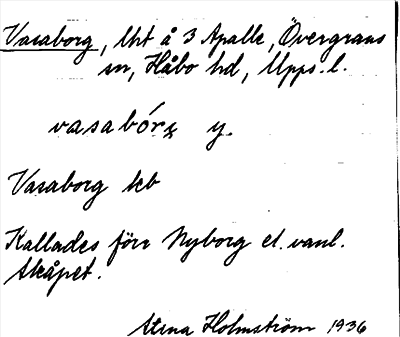 Vasaborg, lht å 3 Apalle, Övergrans
sn, Håbo hd, Upps. l.
vasabórg y.
Vasaborg kb
Kallades förr Nyborg el. vanl.
Skåpet.
Stina Holmström 1936